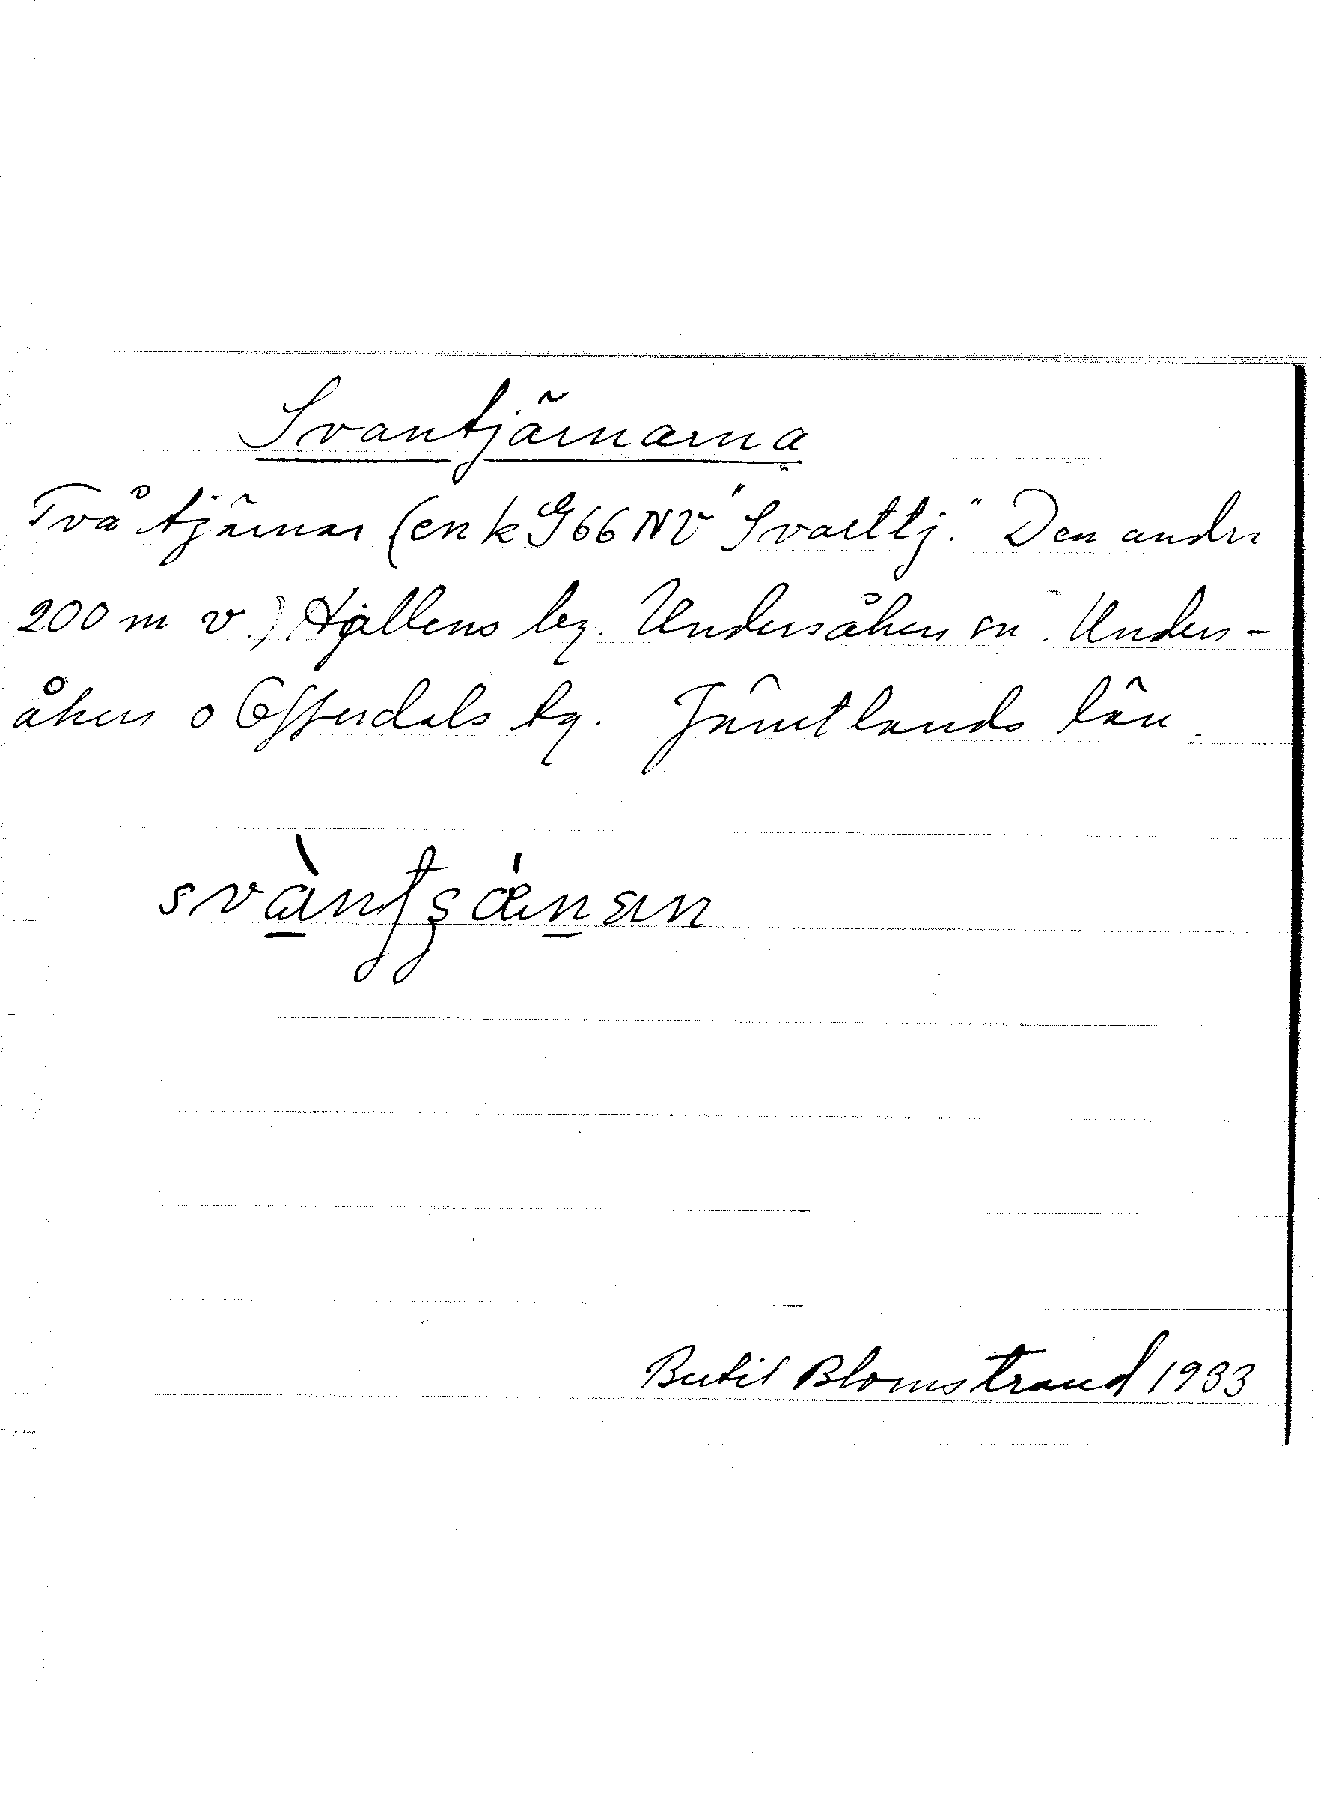 Svantjärnarna
Två tjärnar (en k G66NV "Svarttj." Den andra
200 m v.) Hållens by. Undersåkers sn. Unders-
åkers o Offerdals tg. Jämtlands län.
Bertil Blomstrand 1933